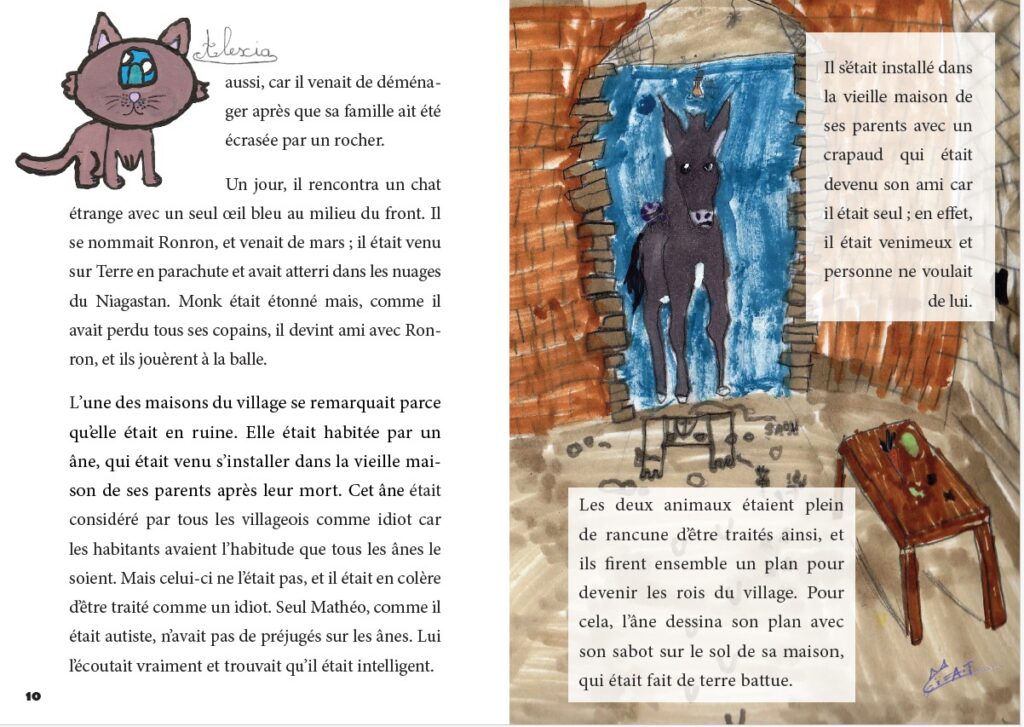 Alexia
aussi, car il venait de déména-
ger après que sa famille ait été
écrasée par un rocher.
Un jour, il rencontra un chat
étrange avec un seul œil bleu au milieu du front. Il
se nommait Ronron, et venait de mars ; il était venu
sur Terre en parachute et avait atterri dans les nuages
du Niagastan. Monk était étonné mais, comme il
avait perdu tous ses copains, il devint ami avec Ron-
ron, et ils jouèrent à la balle.
L’une des maisons du village se remarquait parce
qu’elle était en ruine. Elle était habitée par un
âne, qui était venu s’installer dans la vieille mai-
son de ses parents après leur mort. Cet âne était
considéré par tous les villageois comme idiot car
les habitants avaient l’habitude que tous les ânes le
soient. Mais celui-ci ne l’était pas, et il était en colère
d’être traité comme un idiot. Seul Mathéo, comme il
était autiste, n’avait pas de préjugés sur les ânes. Lui
l’écoutait vraiment et trouvait qu’il était intelligent.
10
Il s’était installé dans
la vieille maison de
ses parents avec un
crapaud qui était
devenu son ami car
il était seul ; en effet,
il était venimeux et
personne ne voulait
de lui.
Les deux animaux étaient plein
de rancune d’être traités ainsi, et
ils firent ensemble un plan pour
devenir les rois du village. Pour
cela, l’âne dessina son plan avec
son sabot sur le sol de sa maison,
qui était fait de terre battue.